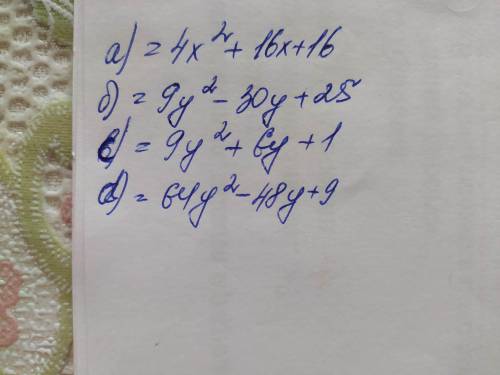 а) = 4x² + 16x + 16
б) = 9y² - 30y + 25
с) = 9y² + 6y + 1
d) = 64y² - 48y + 9